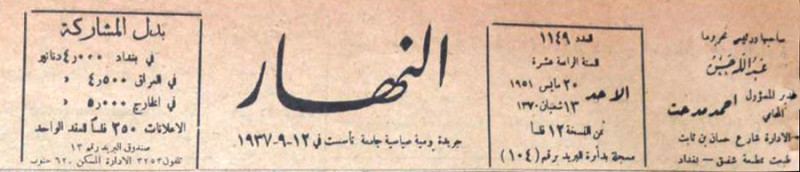 صاحبها ورئيس تحريرها
عبد الله حسن
المدير المسؤول
المحامي
احمد مدحت
الادارة شارع حسان بن ثابت
طبعت بمطبعة شفيق – بغداد
العدد ١١٤٩
السنة الرابعة عشرة
الاحد
٢٠ مايس ١٩٥١
١٣ شعبان ١٣٧٠
ثمن النسخة ١٢ فلساً
مسجلة بدأرة البريد برقم (١٠٤)
النهار
جريدة يومية سياسية جامعة تأسست في ١٢-٩-١٩٣٧
بدل المشاركة
في بغداد ٤٫٠٠٠ دنانير
في العراق ٤٫٥٠٠ «
في الخارج ٥٫٠٠٠ «
الاعلانات ٢٥٠ فلساً العقد الواحد
صندوق البريد رقم ١٣
تلفون ٣٢٥٣ الادارة المسكن ٦٢٠ جنوب